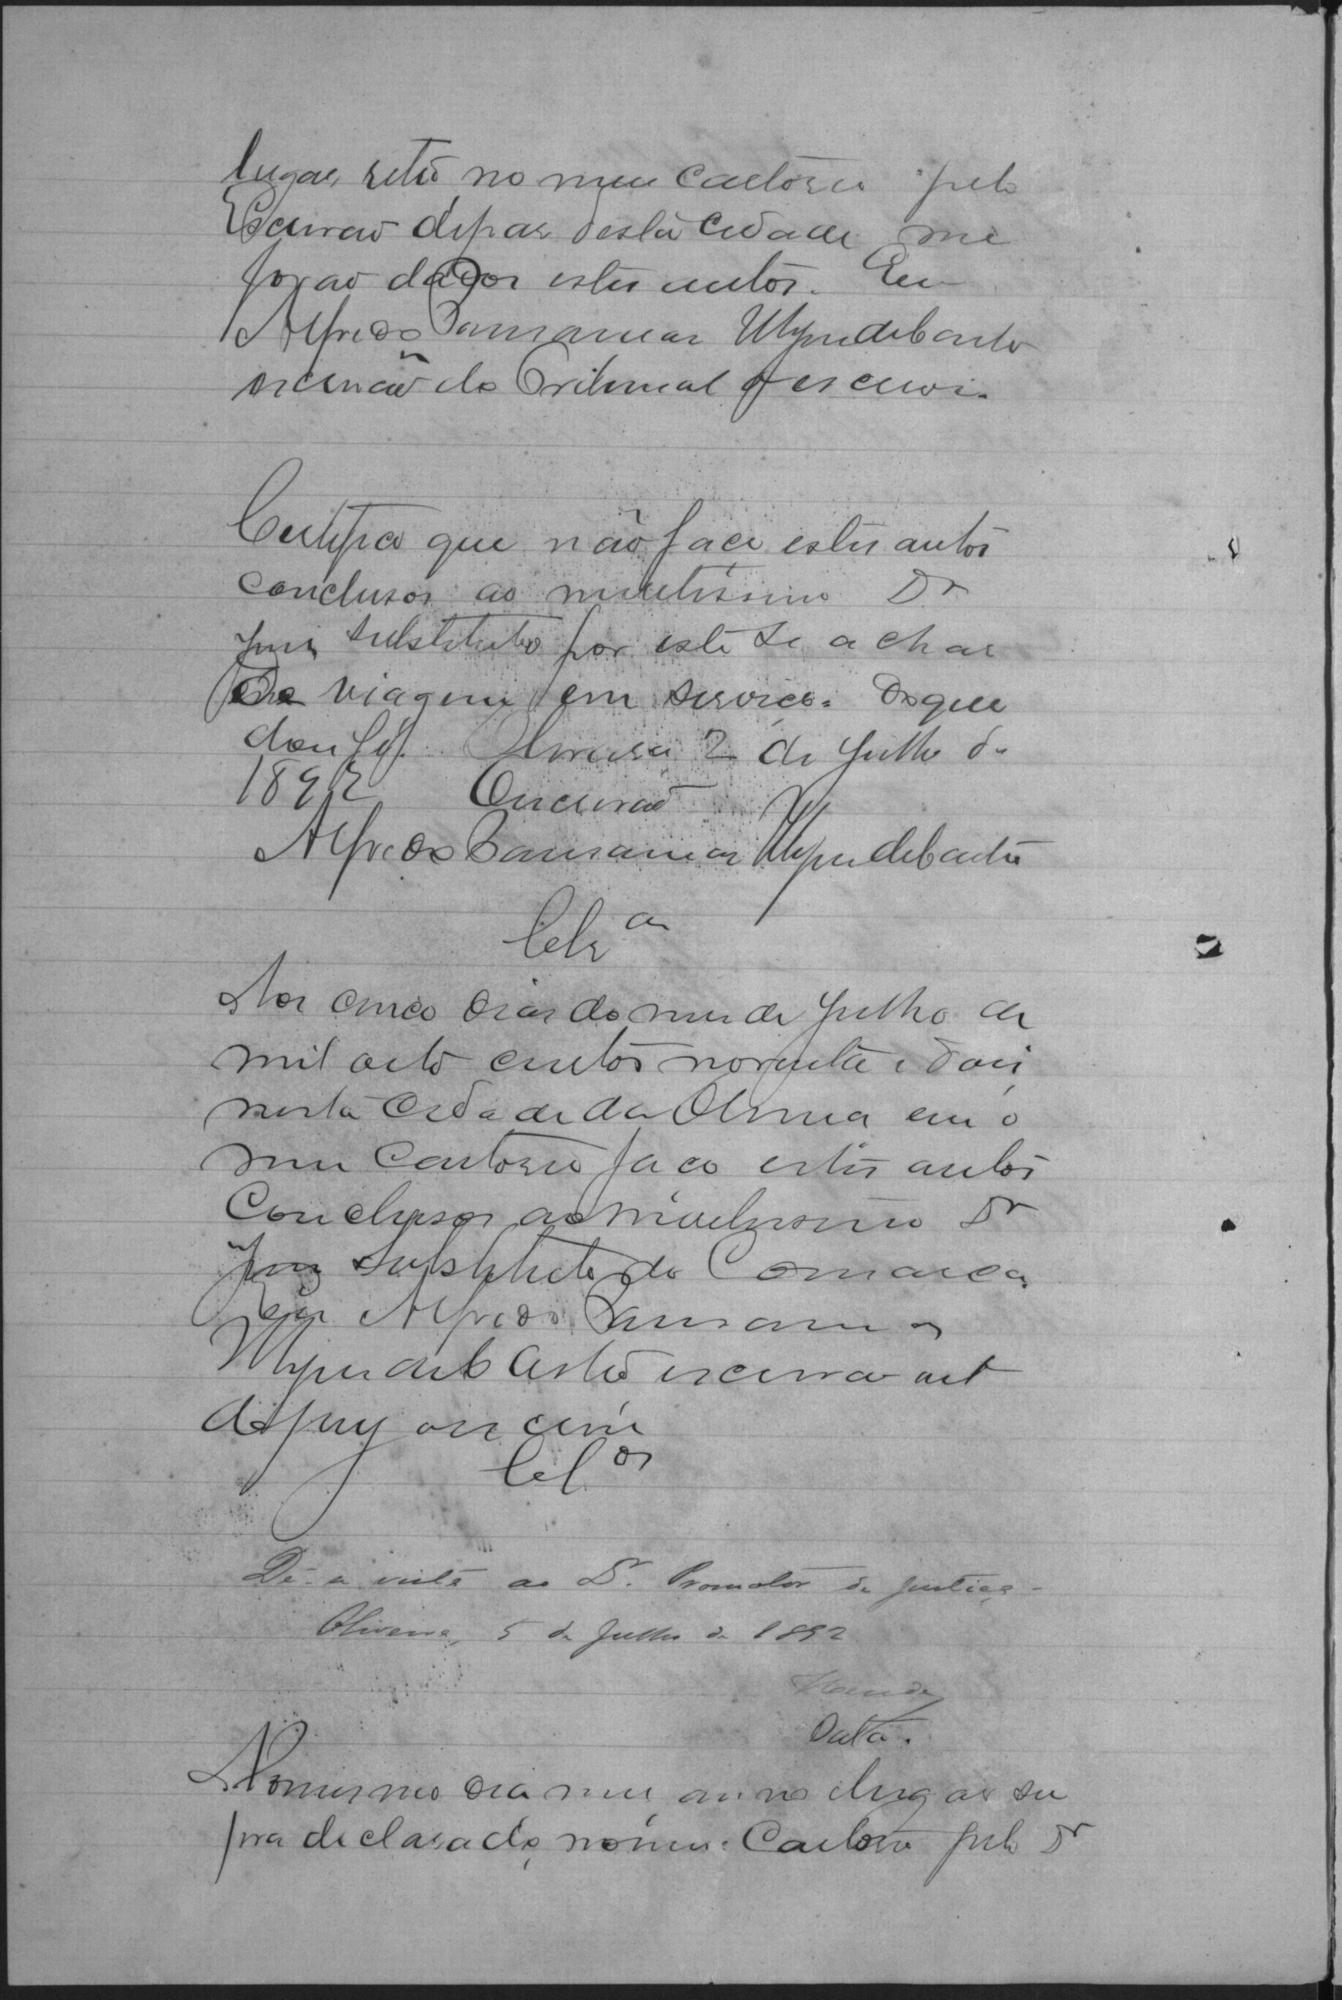 lugar, retro no meu cartorio pelo
Escrivão de paz desta cidade me
forão dados estes autos. Eu
Alfredo
escrivão do Tribunal o escrevi.
Certifico que não faço estes autos
conclusos ao meretissimo Dr
juiz substituto por este se achar
de viagem em serviço. Do que
dou fé. Oliveira 2 de Julho de
1892 O escrivão
Alfredo
Clsam
Aos cinco dias do mes de Julho de
mil oito centos noventa e dois
nesta cidade da Oliveira em o
meu Cartorio faço estes autos
Conclusos ao meretissimo Dr
juiz substituto da Comarca
Eu Alfredo
escrivão
do jury o escrevi
Clos
Dê-a vista ao Dr. Promotor de Justiça -
Oliveira, 5 de Julho de 1892
Data.
No mesmo dia mes, anno e lugar su
pra declarado, no meu Cartorio pelo Dr